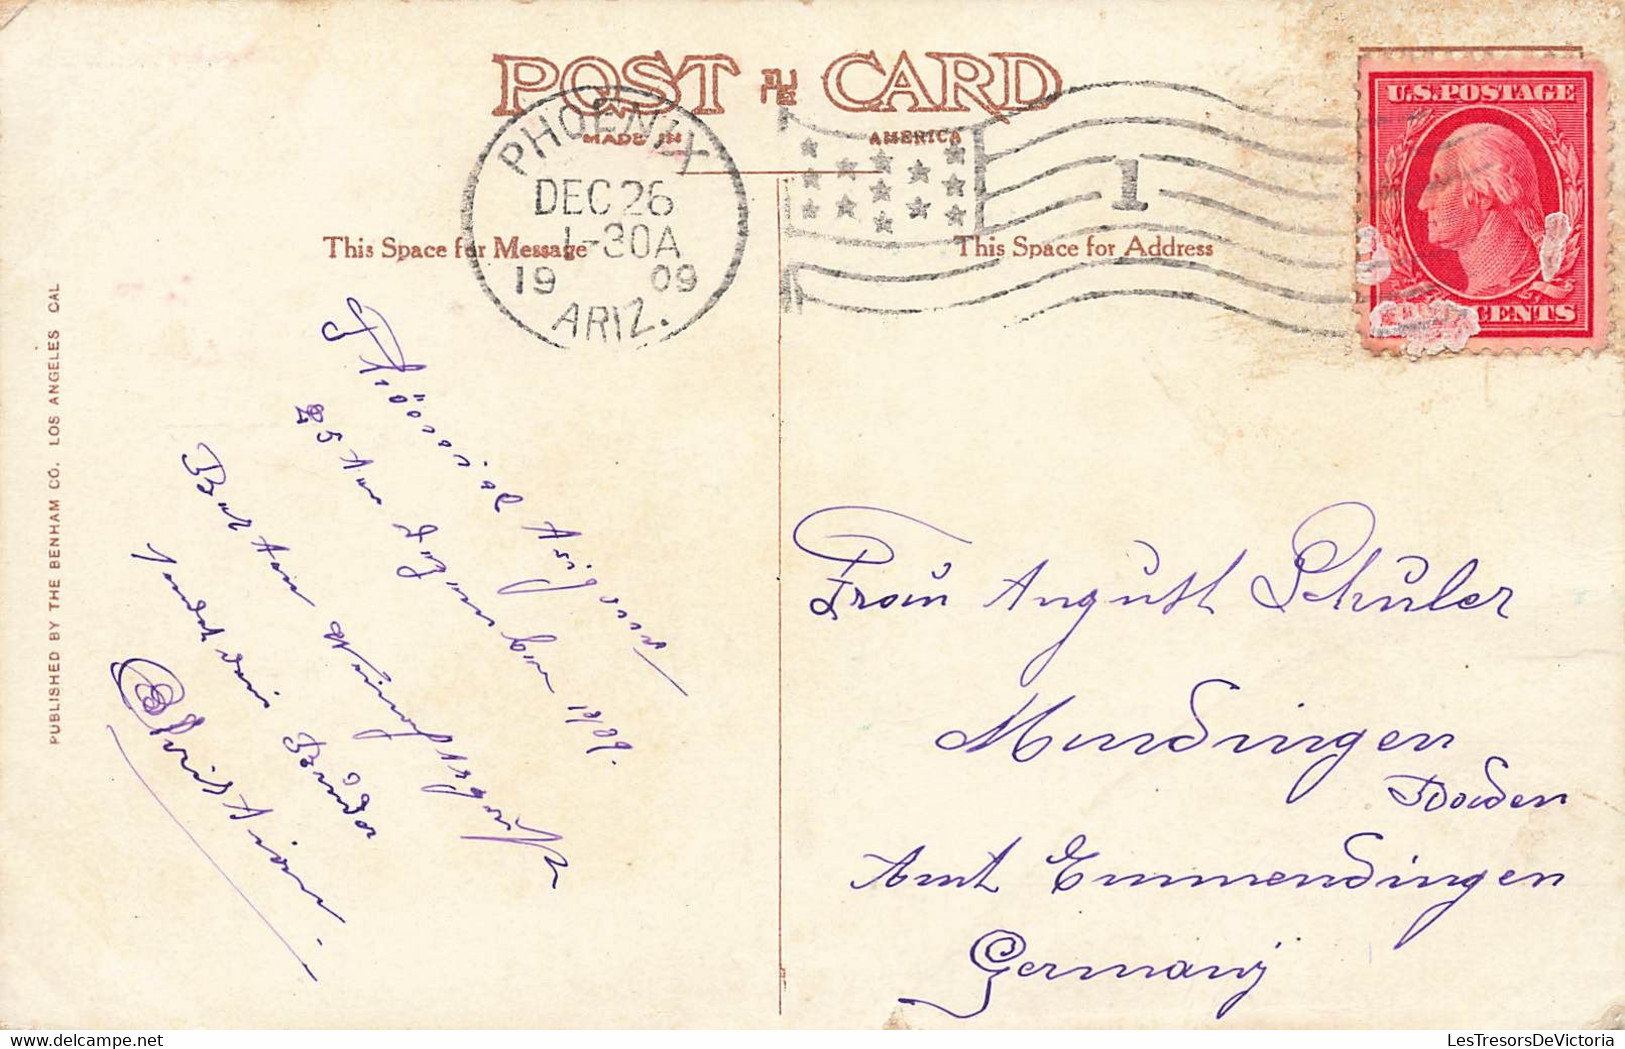 POST CARD
MADE IN AMERICA
PHOENIX
DEC 26
1-30A
1909
ARIZ.
1
U.S.POSTAGE
CENTS
This Space for Message
This Space for Address
PUBLISHED BY THE BENHAM CO. LOS ANGELES CAL
Arizona
25ten Dezember 1909.
Besten Weinachtsgruß
sendet dein Bruder
Christian.
Frau August Schuler
Mundingen
Baden
Amt Emmendingen
Germany
LesTresorsDeVictoria.com